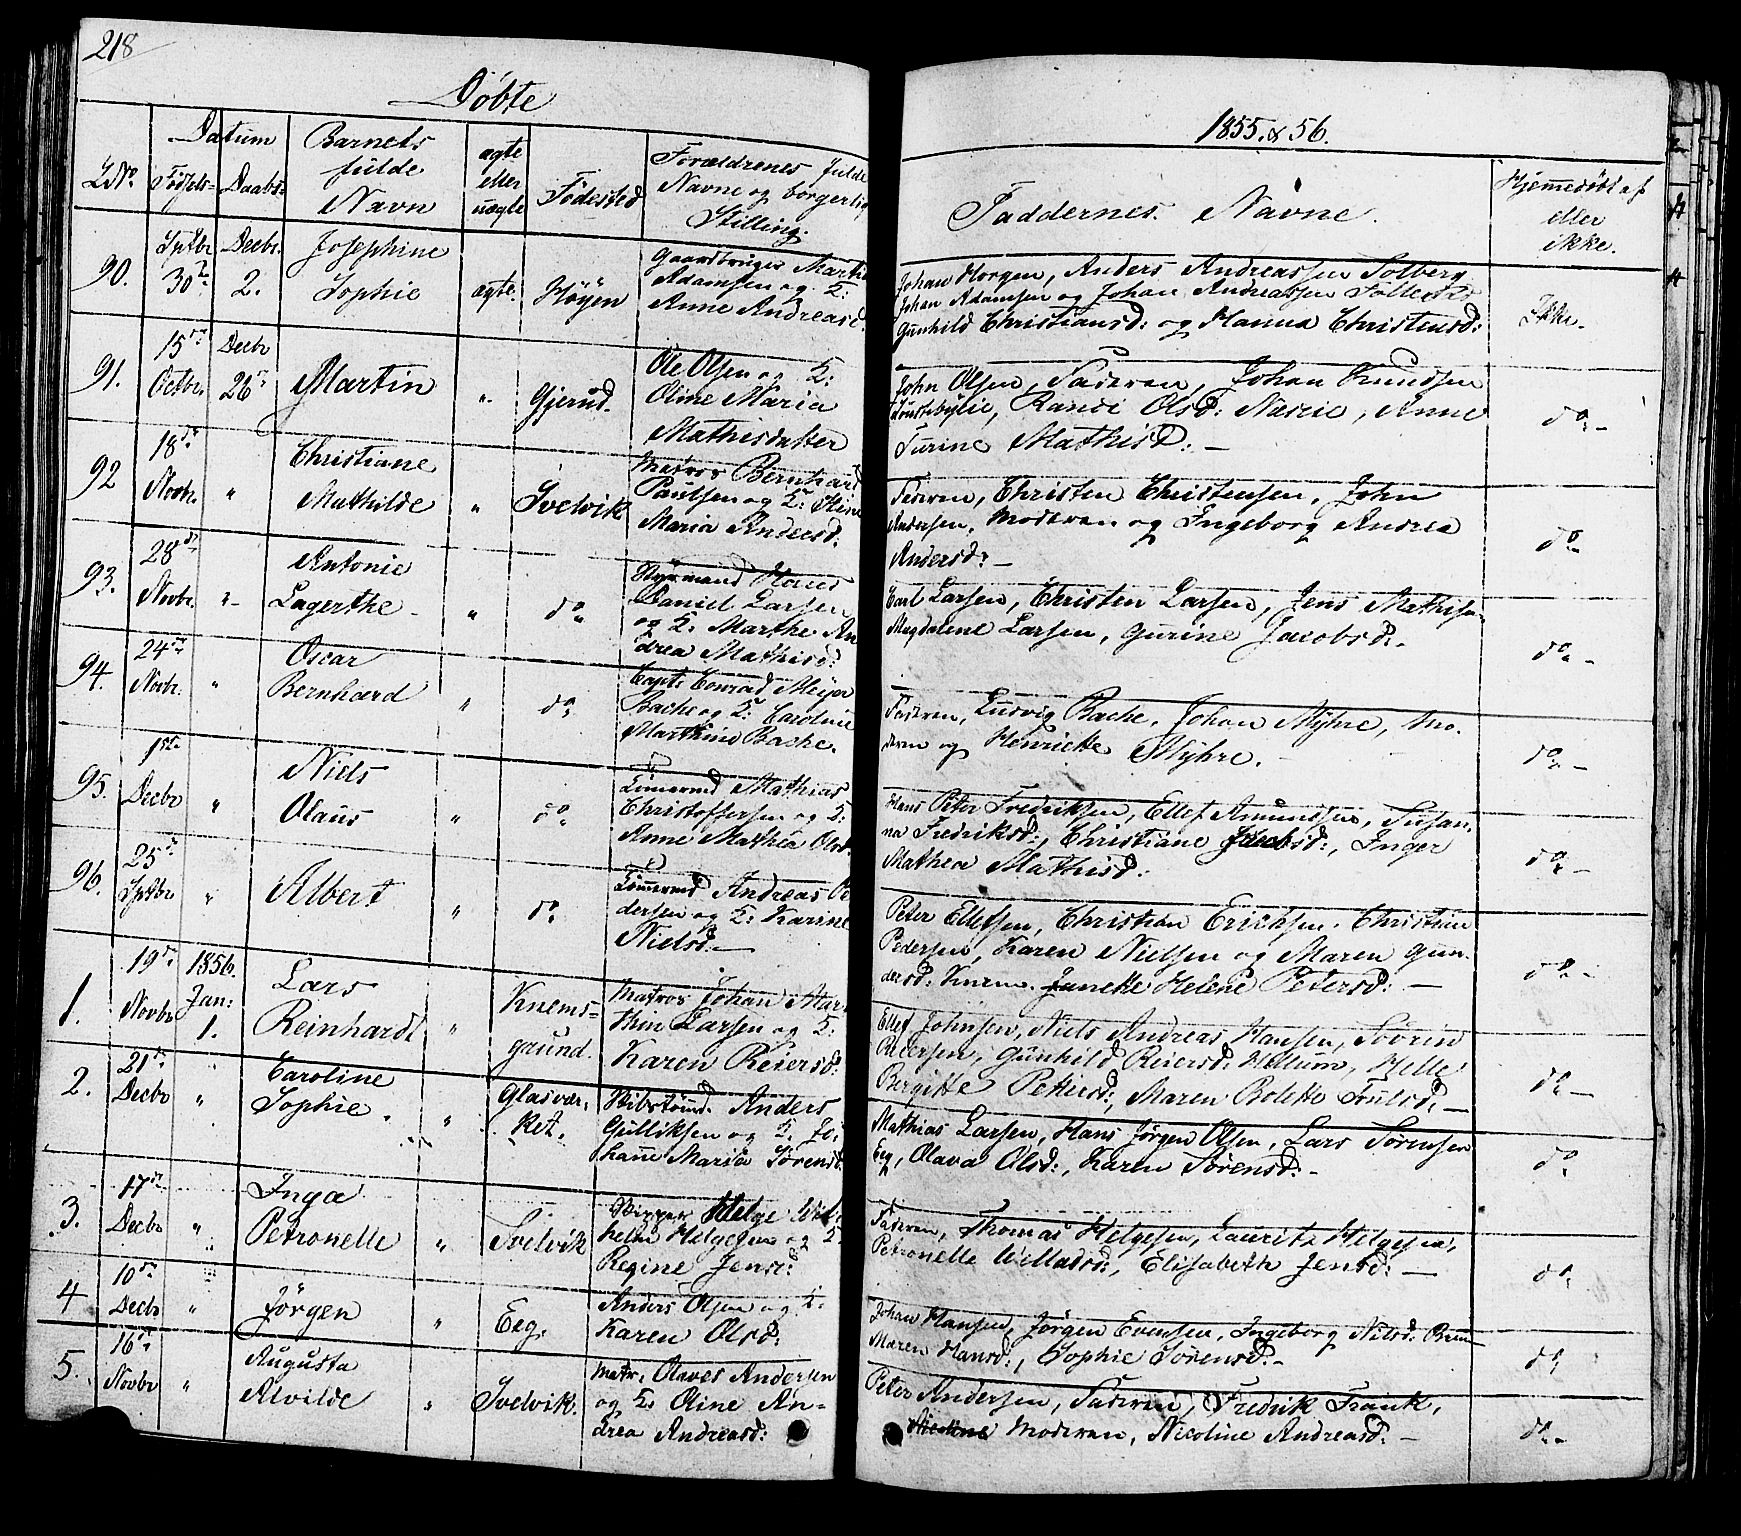 218
Döbte
1855 & 56.
LNo. Datum Barnets fulde Navn ægte eller uægte Födested Forældrenes fulde Navne og borgerlig Stilling. Faddernes Navne. Hjemmedöbt
Födsels- Daabs-
eller
ikke.
90. Sptbr 30te Decbr. 2. Josephine Sophie ægte. Höyen
Gaardbruger
Adamsen og K:
Anne Andreasd.
Johan Horgen, Anders Andreassen Solberg
Johan Adamsen og Johan Andreassen
Gunhild Christiansd: og Hanna Christensd:
Ikke.
91. 15de Octbr. Decbr 26de Martin " Gjerud.
Ole Olsen og K:
Oline Maria
Mathisdatter
John Olsen, Faderen, Johan Knudsen
Randi Olsd: Næsie, Anne
Turine Mathisd: —
do. –
92 18de Novbr. " Christiane Mathilde " Svelvik
Matros Bernhard
Paulsen og K: Oline
Maria Andersd.
Faderen, Christen Christensen, John
Andersen, Moderen og Ingeborg Andrea
Andersd: —
do.
93. 28de Novbr. " Antonie Lagerthe – " do.
Styrmand Hans
Daniel Larsen
og K. Marthe An
drea Mathisd:
Carl Larsen, Christen Larsen, Jens Mathisen
Magdalene Larsen, Gurine Jacobsd: –
do. –
94. 24de Novbr. " Oscar Bernhard " do.
Capt: Conrad Meyer
Bache og K: Caroline
Marthine Bache.
Faderen, Ludvig Bache, Johan Myhre, Mo-
deren og Henriette Myhre.
do. –
95. 1ste Decbr " Niels Olaus " do.
Tömermd Mathias
Christoffersen og K:
Anne Mathea Olsd.
Hans Peter Fredriksen, Ellef Amundsen, Susan-
na Fredriksd:, Christiane Jacobsd:, Inger
Mathea Mathisd:
do. –
96. 25de Sptbr " Albert " do.
Tömermd Andreas Pe
dersen og K: Karine
Nielsd. —
Peter Ellefsen, Christian Erichsen, Christian
Pedersen, Karen Nielsen og Maren Gun-
dersd: Janette Helene Petersd: —
do. –
1. 19de Novbr 1856. Jan: 1. Lars Reinhardt " Knems- grund.
Matros Johan Mar-
thin Larsen og K:
Karen Reiersd:
Ellef Johnsen, Niels Andreas Hansen, Sörin
Pedersen, Gunhild Reiersd: Hellum, Helle
Bergitte Pettersd:, Maren Bolette Trulsd. —
do. –
2. 21de Decbr " Caroline Sophie. " Glasvær- ket.
Skibstömd. Anders
Gulliksen og K. Jo-
hanne Maria Sörensd
Mathias Larsen, Hans Jörgen Olsen, Lars Sörensen
Eeg, Olava Olsd:, Karen Sörensd: –
do.
3. 17de Decbr " Inga Petronelle " Svelvik
Skipper Helge Wil-
helm Helgesen og K.
Regine Jensd:
Faderen, Thomas Helgesen, Lauritz Helgesen,
Petronelle Willadsd:, Elisabeth Jensd: —
do.
4 10de Decbr " Jörgen " Eeg.
Anders Olsen og K.
Karen Olsd:
Johan Hansen, Jörgen Evensen, Ingeborg Nilsd.
Maren Hansd:, Sophie Sörensd: –
do.
5. 16de Novbr " Augusta Alvilde " Svelvik.
Matr. Olaves Andersen
og K. Oline An-
drea Andreasd:
Peter Andersen, Faderen, Fredrik Frank,
Moderen, Nicoline Andreasd: –
do. –